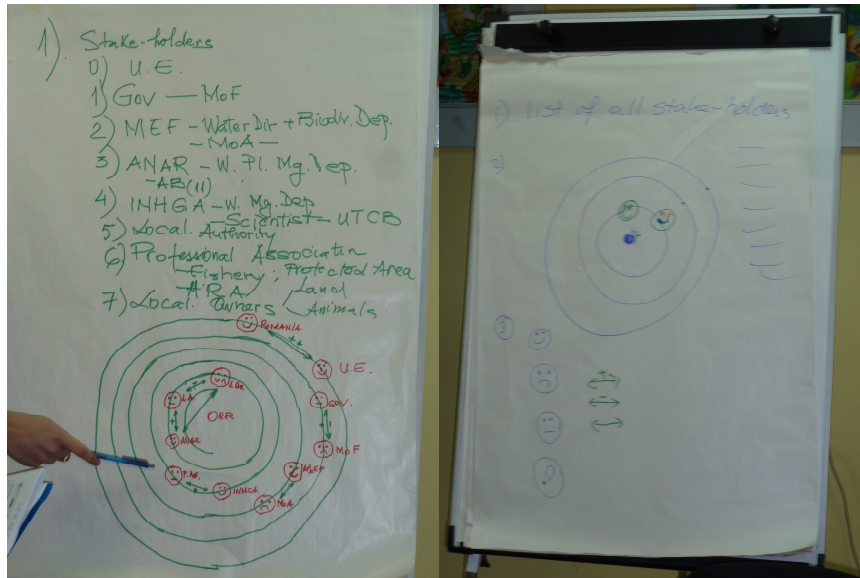 1). Stake-holders
0) U.E.
1) Gov — MoF
2) MEF - Water Dir + Biodiv. Dep.
- MoA -
3) ANAR - W. Pl. Mg. Dep.
- AB (11)
4) INHGA - W. Mg. Dep
- Scientist - UTCB
5) Local Authority
6) Professional Association
- Fishery ; Protected Area
- HRA
7) Local Owners Land
Animals
ROMANIA
++
U.E.
LA
GOV.
ANAR
MoF
INHGA
MoA
1) list of all stake-holders
2)
3
+
-
?